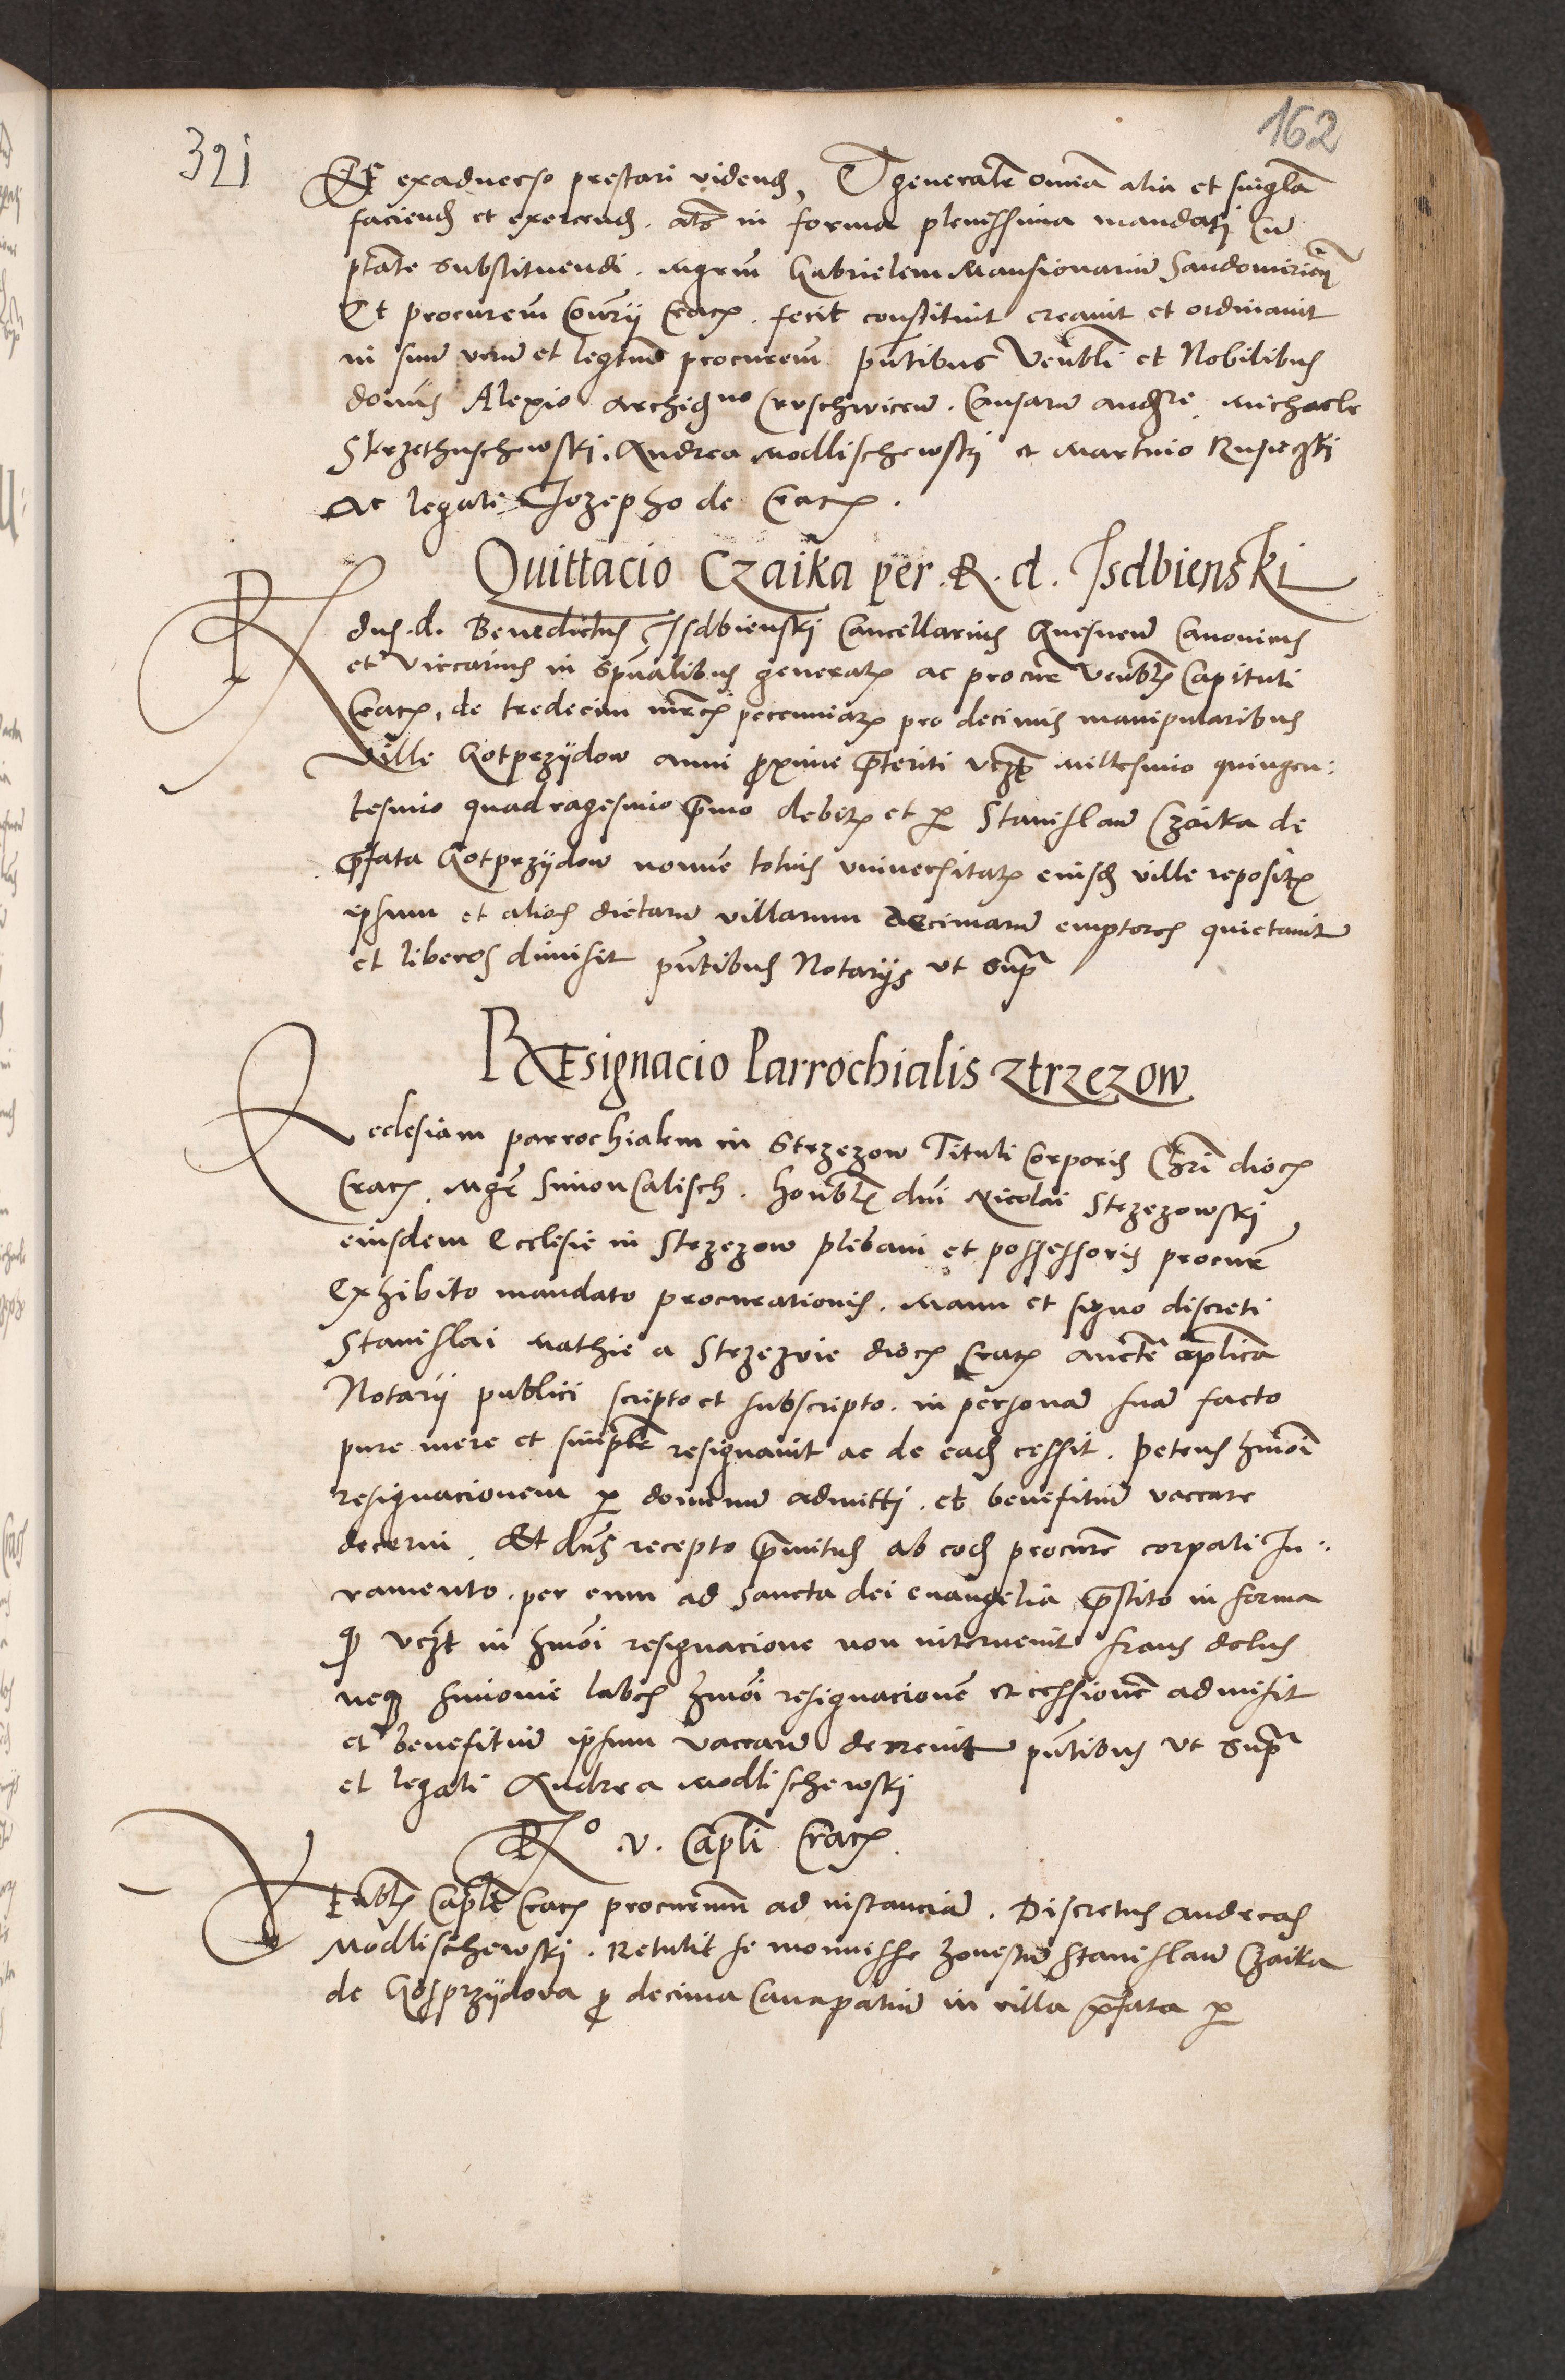 162
321
Et exadverso prestari vidend, Et generalr omnia alia et singla
faciend et exercend. als in forma plenissima mandati cu
ptate substituendi. Mgrm Gabrielem Mansionariu Sandomirien
Et procurem Consrii Crac. fecit constituit creavit et ordinavit
in suu veru et legtimu procurem pntibus Venbli et Nobilibus
domis Alexio Archidno Cruschvicen. Causaru audre Michaele
Skrzethuschewski. Andrea Modlischewskj et Martino Rusieczki
Ac legate Jozepho de Crac.
Quittacio Czaika per. R. d. Isdbienski
Rdus. d. Benedictus Isdbienski Cancellarius Gnesnen Canonicus
et Viccarius in Spualibus generatr ac procur Venblis Capituli
Crac, de tredecim mrcis peccuniar pro decimis manipularibus
Ville Gotprzijdow anni proxime preteriti vczt millesimo quingen:
tesimo quadragesimo primo debit et per Stanislau Czaika de
prefata Gotprzijdow nomine totius universitatis eiusd ville reposit
ipsum et alios dictaru villarum decimaru emptores quietavit
et liberos dimisit pntibus Notarijs ut supra
REsignacio Parrochialis Ztrzezow
Ecclesiam parrochialem in Strzezow Tituli Corporis Chri dioc
Crac, Mgr Simon Calisch. honblis dni Nicolai Strzezowskj
eiusdem Ecclesie in Strzezow plebani et possessoris procur
Exhibito mandato procurationis. Manu et signo discreti
Stanislai Mathie a Strzezvie dioc Crac aucte aplica
Notarii publici scripto et subscripto. in persona sua facto
pure mere et simplr resignavit ac de ead cessit. petens hmoi
resignacionem per dominu admitti. et benefitiu vaccare
decerni. Et dns recepto primitus ab eod procure corpali Iu:.
ramento. per eum ad sancta dei evangelia prestito in forma
quod vczt in hmoi resignacione non intervenit fraus dolus
neque simonie labes hmoi resignacione et cessione admisit
et benefitiu ipsum vaccare decrevit pntibus ut supra
et legali Andrea Modlischewskj
Ro. v. Capli Crac.
VEnblis Capli Crac procurenm ad instancia. Discretus Andreas
Modlischewskj. Retulit se monuisse honestu Stanislau Czaika
de Gosprzijdova pro decima Canapatiu in villa prefata per